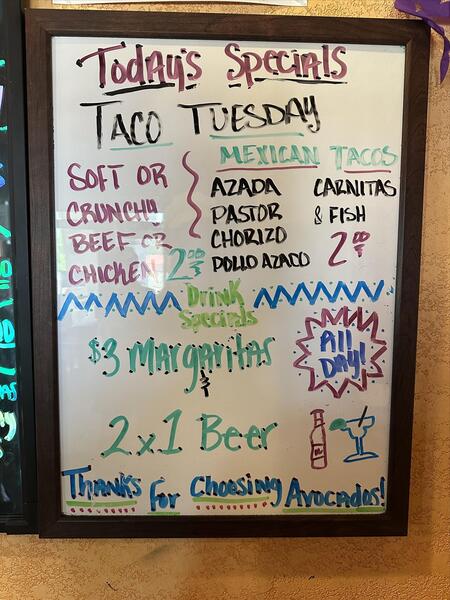 Today's Specials
Taco Tuesday
SOFT OR
CRUNCHY
BEEF OR
CHICKEN 2.00
MEXICAN TACOS
AZADA CARNITAS
PASTOR & FISH
CHORIZO
POLLO AZACO 2.00
Drink
Specials
$3 Margaritas
&
2x1 Beer
All
Day!
Thanks for Choosing Avocados!